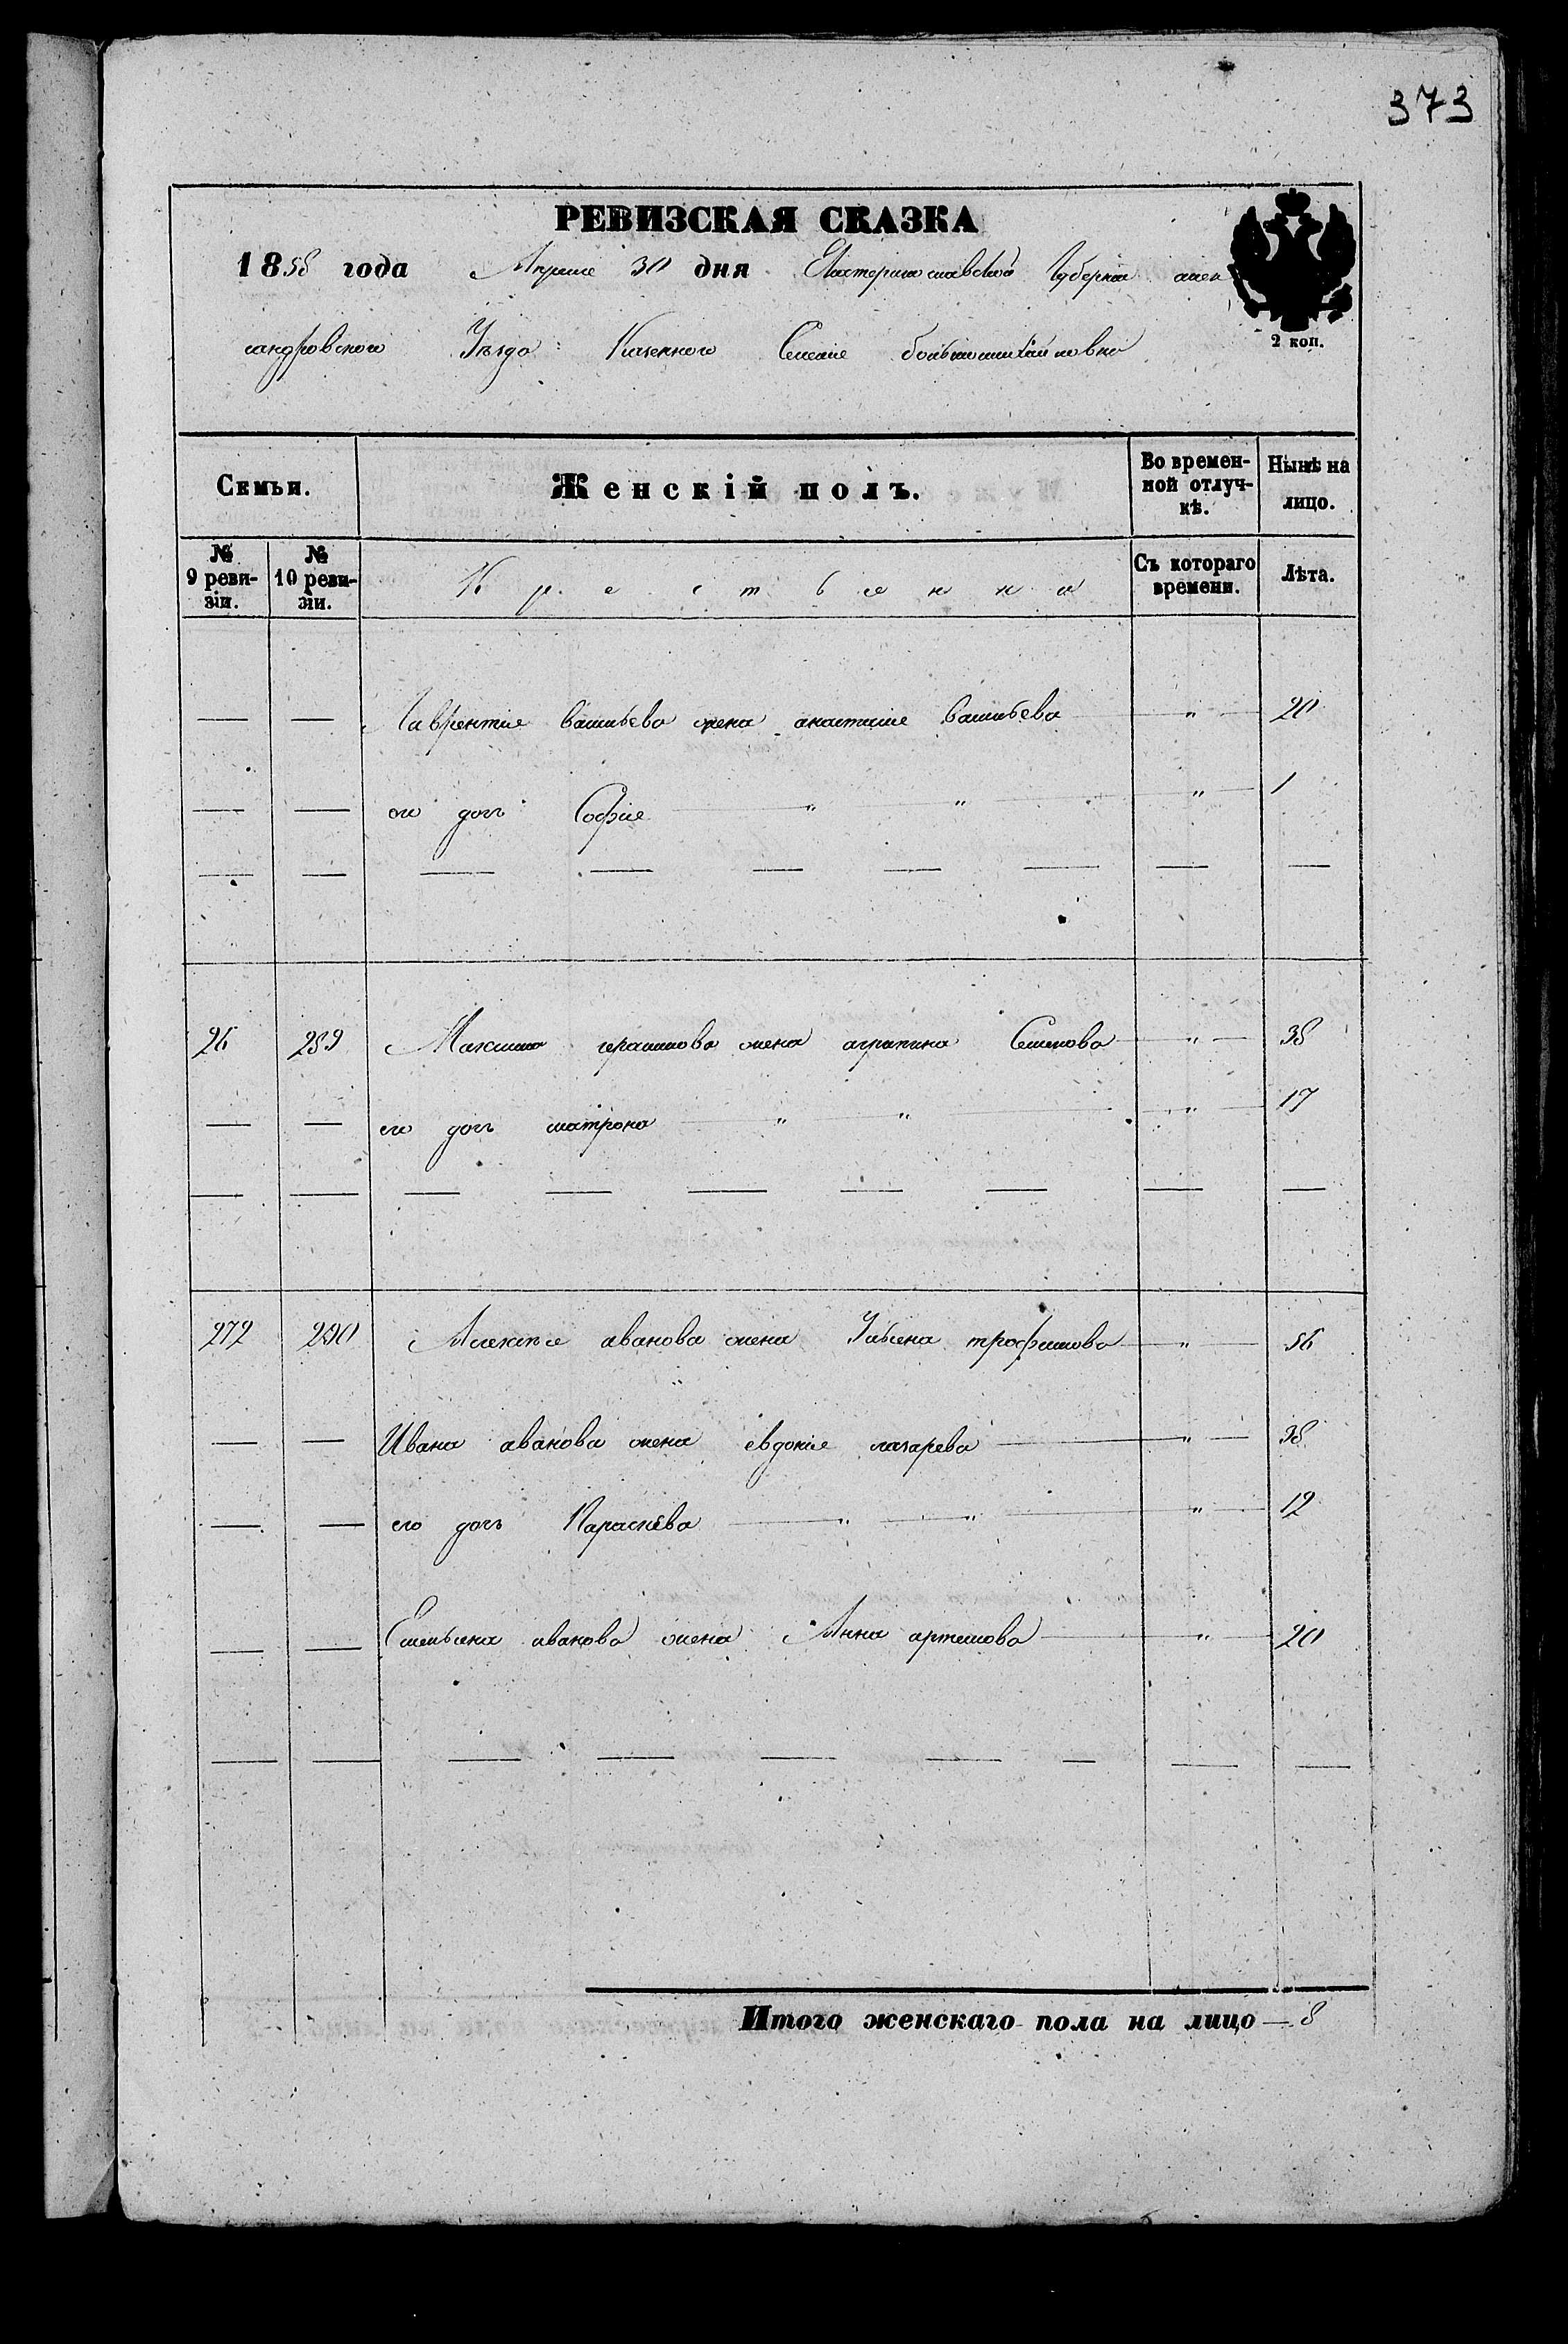 373
РЕВИЗСКАЯ СКАЗКА
1858 года Апреле 30 дня Екатеринославской Губернии алек
2 коп.
сандровского Уезда Казенного Селение большомихайловка
Семьи. Женскій полъ. Во времен-ной отлуч-кѣ. Нынѣ на лицо.
№ 9 реви-зіи. № 10 реви-зіи. Крестьянки Съ котораго времени. Лѣта.
— — Лаврентие васильева жена анастасие васильева — " — 20
— — его дочь Софие — " — " — " — 1
— — — — — — — — —
26 289 Максима герасимова жена агрипина Семенова — " — 38
— — его дочь матрона — " — " — " — 17
— — — — — — — — —
272 290 Алексея иванова жена Ульена трофимова — " — 56
— — Ивана иванова жена евдокие лазарева — " — 38
— — его дочь Параскева — " — " — " — 12
— — Емельена иванова жена Анна артемова — " — 20
— — — — — — — — —
Итого женскаго пола на лицо — 8